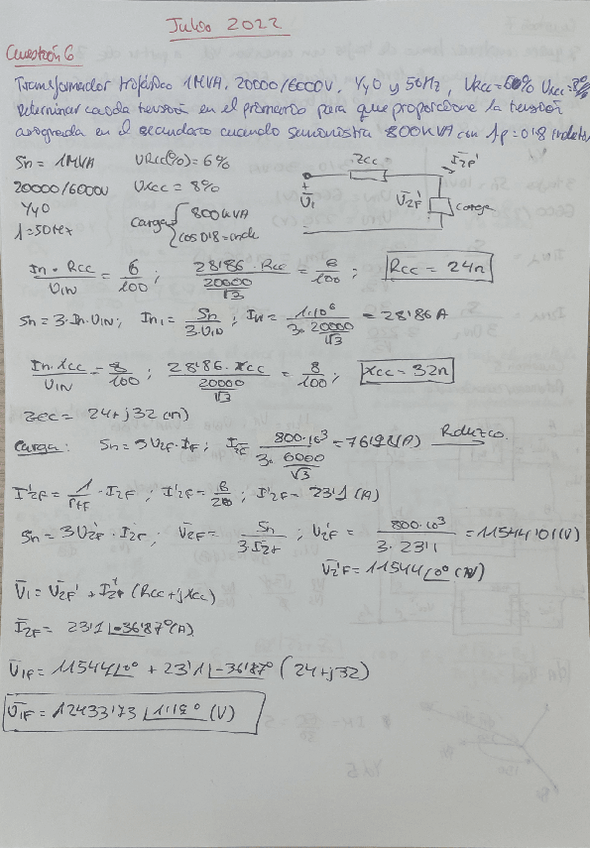 Julio 2022
Cuestión 6
Transformador trifásico 1MVA, 20000/6000V, Yy0 y 50Hz, URcc=6% Uxcc=8%
Determinar cuada tensión en el primario para que proporcione la tensión
asignada en el secundario cuando suministra 800KVA con fp=0'8 inductivo
Sn = 1MVA URcc(%) = 6%
20000/6000V Uxcc = 8%
Yy0
f=50Hz
carga { 800KVA
cos 0'8 = inde
Zcc I2F'
U1 U2F' carga
In · Rcc / U1N = 6/100 ; 28'86 · Rcc / (20000/√3) = 6/100 ; Rcc = 24Ω
Sn = 3·In·U1N ; In1 = Sn / 3·U1N ; In = 1·10⁶ / (3·20000/√3) = 28'86 A
In·Xcc / U1N = 8/100 ; 28'86·Xcc / (20000/√3) = 8/100 ; Xcc = 32Ω
Zcc = 24+j32 (Ω)
Carga: Sn = 3U2F·IF ; I2F = 800·10³ / (3·6000/√3) = 76'98(A) Reduzco.
I'2F = 1/rtF · I2F ; I'2F = 6/20 ; I'2F = 23'1 (A)
Sn = 3U2F' · I2F' ; U2F' = Sn / 3·I2F' ; U2'F = 800·10³ / 3·23'1 = 11544'01(V)
U2'F = 11544∠0° (V)
U1 = U2F' + I2F' (Rcc+jXcc)
I2F = 23'1∠-36'87° (A)
U1F = 11544∠0° + 23'1∠-36'87° (24+j32)
U1F = 12433'73 ∠1'18° (V)